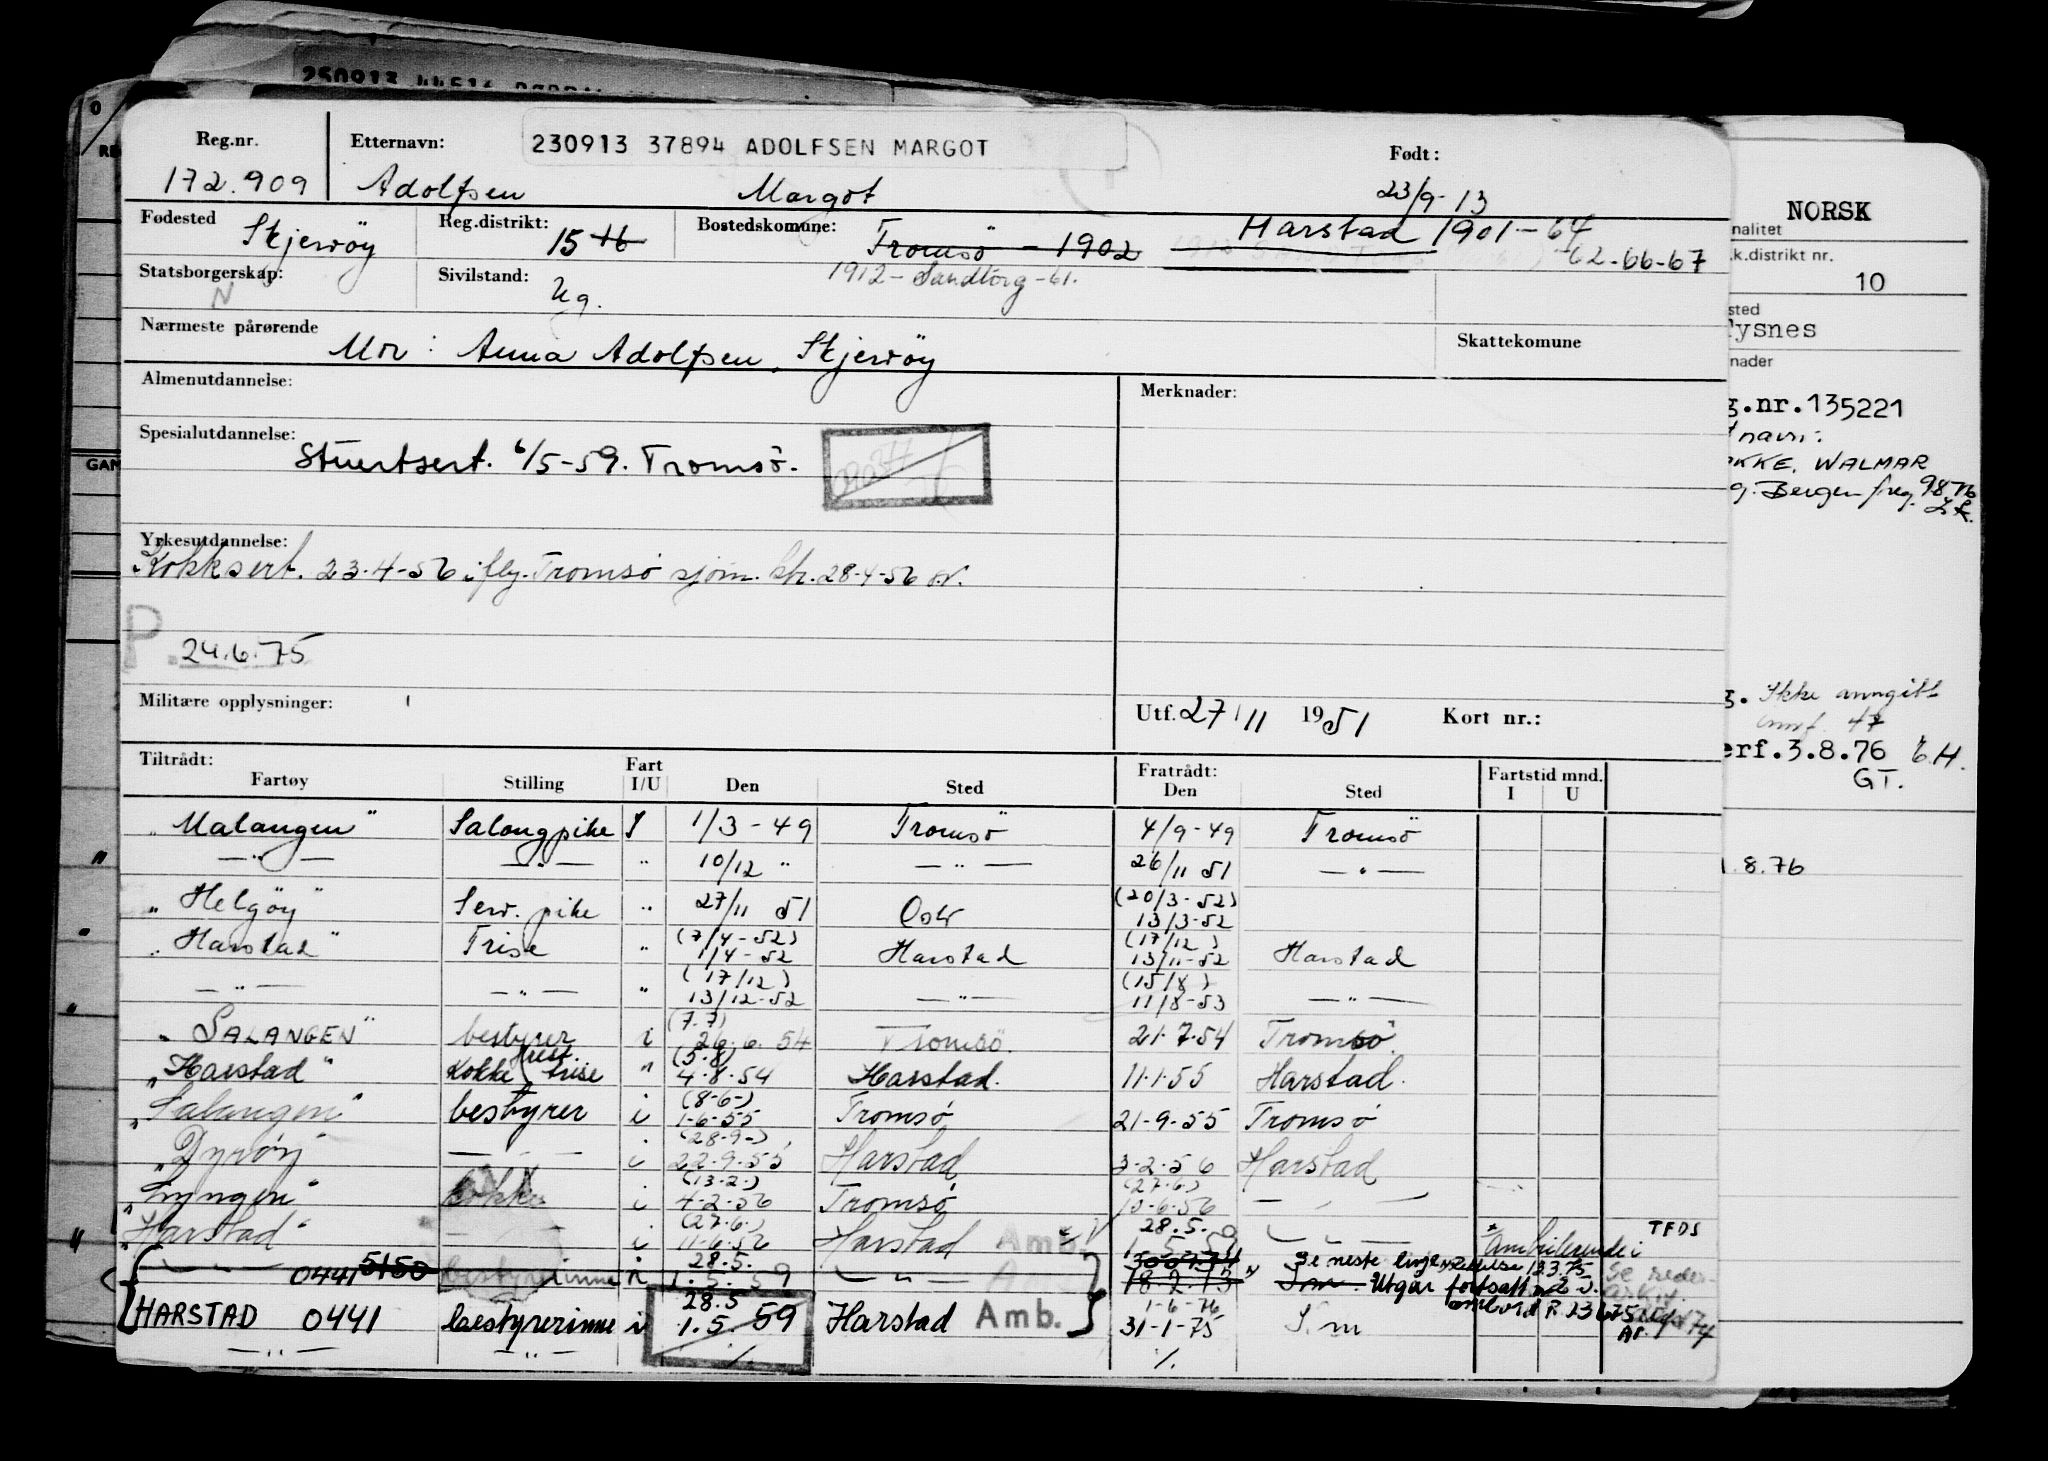 230913 37894 ADOLFSEN MARGOT
Reg.nr. Etternavn: Født:
172.909 Adolfsen Margot 23/9-13
Fødested Skjervöy Reg.distrikt: 15 H Bostedskommune: Tromsö - 1902 Harstad 1901-64
62-66-67
Statsborgerskap: N Sivilstand: Ug. 1912 - Sandtorg -61.
Nærmeste pårørende Mor: Anna Adolfsen, Skjervöy Skattekomune
Almenutdannelse: Merknader:
Spesialutdannelse: Stuertsert. 6/5-59. Tromsö.
Yrkesutdannelse:
Kokksert. 23.4-56 i flg. Tromsö sjöm. ktr. 28-4-56
P. 24.6.75
Militære opplysninger: Utf. 27/11 1951 Kort nr.:
Tiltrådt: Fart Fratrådt: Fartstid mnd.
Fartøy Stilling I/U Den Sted Den Sted I U
"Malangen" Salongpike I 1/3-49 Tromsö 4/9-49 Tromsö
— " — — " — " 10/12 " — " — 26/11 51 — " —
(20/3-52)
"Helgöy" Serv. pike " 27/11 51 13/3-52
(7/4-52) (17/12)
"Harstad" Trise " 1/4-52 Harstad 13/11-52 Harstad
(17/12) (15/8)
— " — — " — " 13/12-52 — " — 11/8-53 — " —
(7.7)
"SALANGEN" bestyrer i 26.6.54 Tromsö. 21.7.54 Tromsö.
(5.8)
"Harstad" Kokke/rest. trise " 4.8.54 Harstad. 11.1.55 Harstad.
(8-6-)
"Salangen" bestyrer i 1-6-55 Tromsö 21-9-55 Tromsö
(28-9-)
"Dyröy" — " — i 22.9.55 Harstad 3-2-56 Harstad
(13-2-) (27-6)
"Lyngen" kokke i 4-2-56 Tromsö 10-6-56 — " —
(27.6.) 28.5.
"Harstad" — i 11-6-56 Harstad Amb. 1.5.59 — " — Ambulerende i TFDS
28.5.
— " — 0441 5150 bestyrerinne i 1.5.59 — " — 18.2.73 S.m. Se neste linje Rettelse 12.3.75
Utgår fortsatt
ombord R 23675
28.5 1-6-76
HARSTAD 0441 bestyrerinne i 1.5.59 Harstad Amb. 31-1-75 S.m
— " — — " — ./. ./.
NORSK
nalitet
.k.distrikt nr.
10
sted
ysnes
nader
g.nr.135221
navn:
KKE, WALMAR
g. Bergen freg. 98
g. Ikke anngitt
47
erf.3.8.76 E.H.
GT.
.8.76
GAM